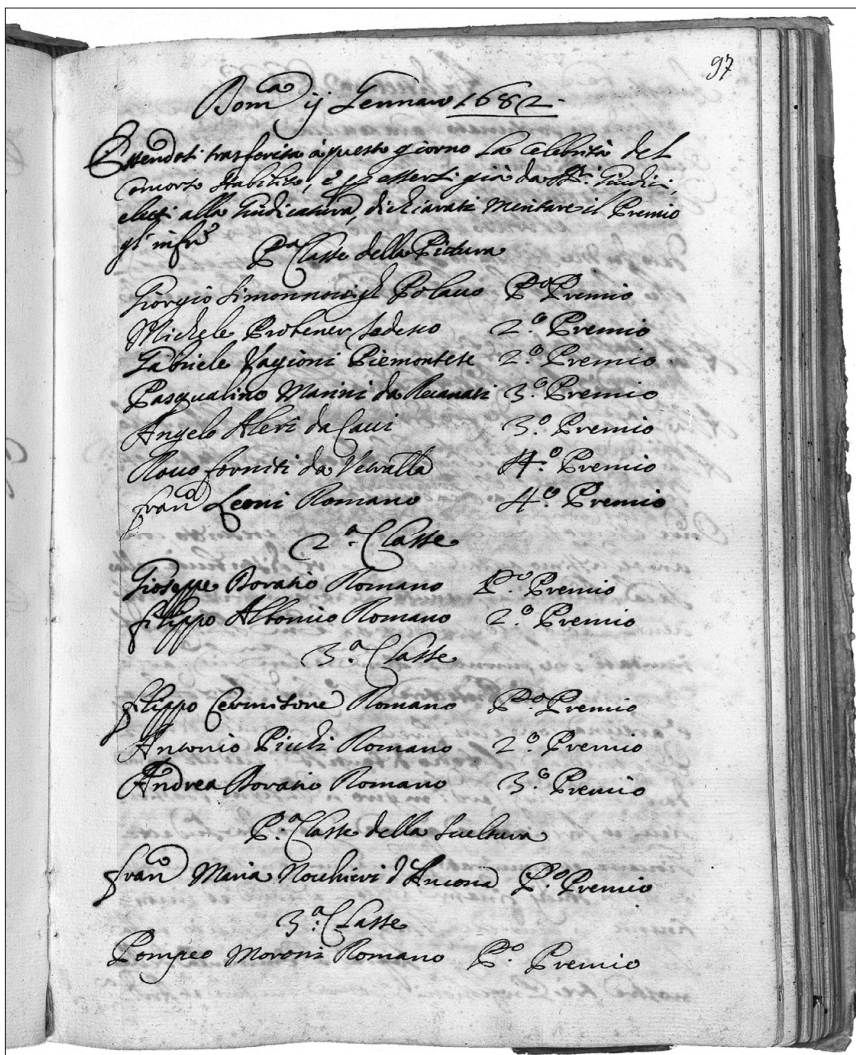 97
Dom.ca ij Gennaro 1682
Essendosi trasferita à questo giorno la Celebrità del
Concorso stabilito, e p essersi già da SS.ri Giudici,
eletti alla Giudicatura, dichiarati meritare il Premio
gl' infri
P.a Classe della Pictura
Giorgio Simonnovigl Polacco P.o Premio
Michele Protener tedesco 2.o Premio
Gabriele Vagioni Piemontese 2.o Premio
Pasqualino Marini da Recanati 3.o Premio
Angelo Aleri da Cavi 3.o Premio
Rocco forniti da Vetralla 4.o Premio
fran.co Leoni Romano 4.o Premio
2.a Classe
Gioseppe Boratio Romano P.o Premio
filippo Romano 2.o Premio
3.a Classe
filippo Cermisone Romano P.o Premio
Antonio Romano 2.o Premio
Andrea Boratio Romano 3.o Premio
P.a Classe della Scultura
fran.co Maria Nocchieri d'Ancona P.o Premio
3.a Classe
Pompeo Moroni Romano P.o Premio